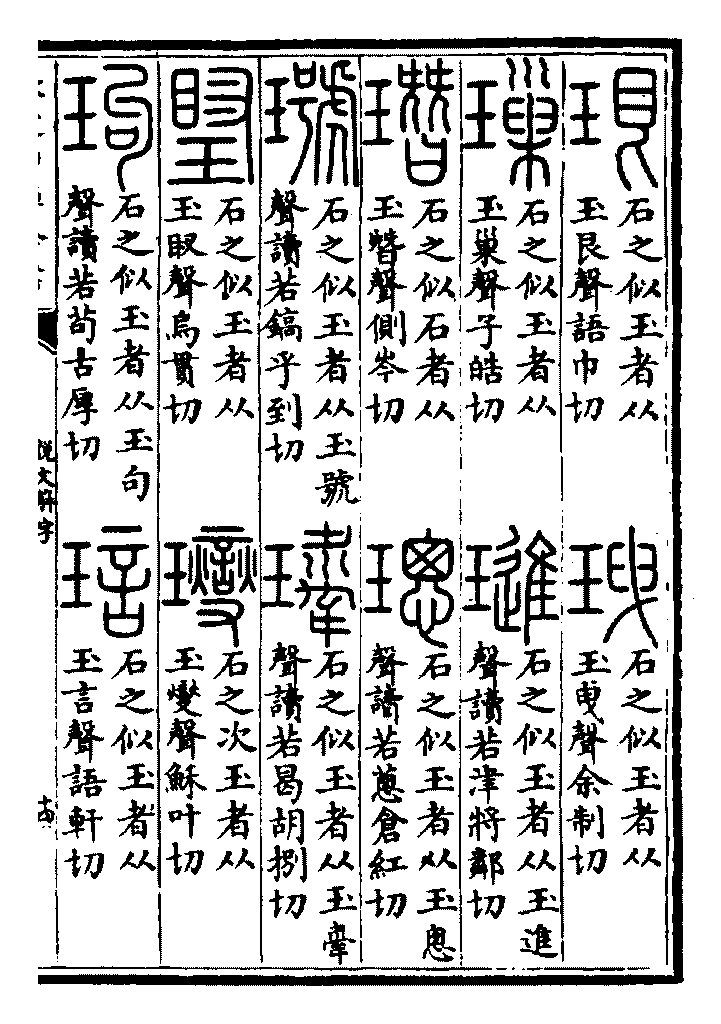 珢
石之似玉者从
玉艮聲語巾切
𤤺
石之似玉者从
玉曳聲余制切
璅
石之似玉者从
玉巢聲子皓切
璡
石之似玉者从玉進
聲讀若津將鄰切
㻸
石之似石者从
玉朁聲側岑切
璁
石之似玉者从玉悤
聲讀若蔥倉紅切
石之似玉者从玉號
聲讀若鎬乎到切
石之似玉者从玉舝
聲讀若曷胡捌切
石之似玉者从
玉䀏聲烏貫切
石之次玉者从
玉燮聲穌叶切
玽
石之似玉者从玉句
聲讀若苟古厚切
琂
石之似玉者从
玉言聲語軒切
說文解字